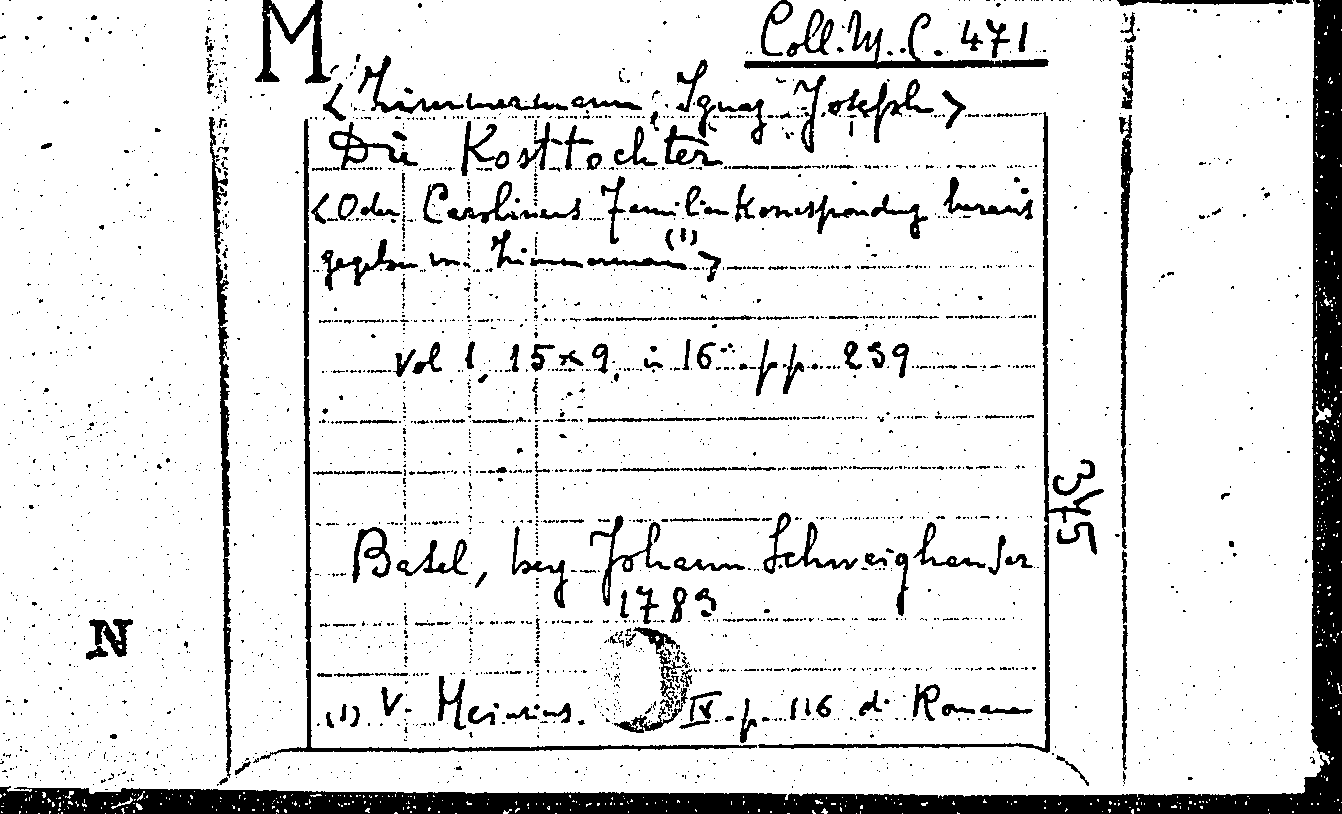 M
Coll. M. C. 471
<Zimmermann, Ignaz Joseph>
Die Kosttochter
<Oder Carolinens Familienkorrespondung heraus
gegeben von Zimmermann (1)>
vol 1, 15 x 9, in 16° pp. 239
345
Basel, bey Johann Schweighauser
1783
N
(1) V. Heinsius. IV. p. 116 di Romane